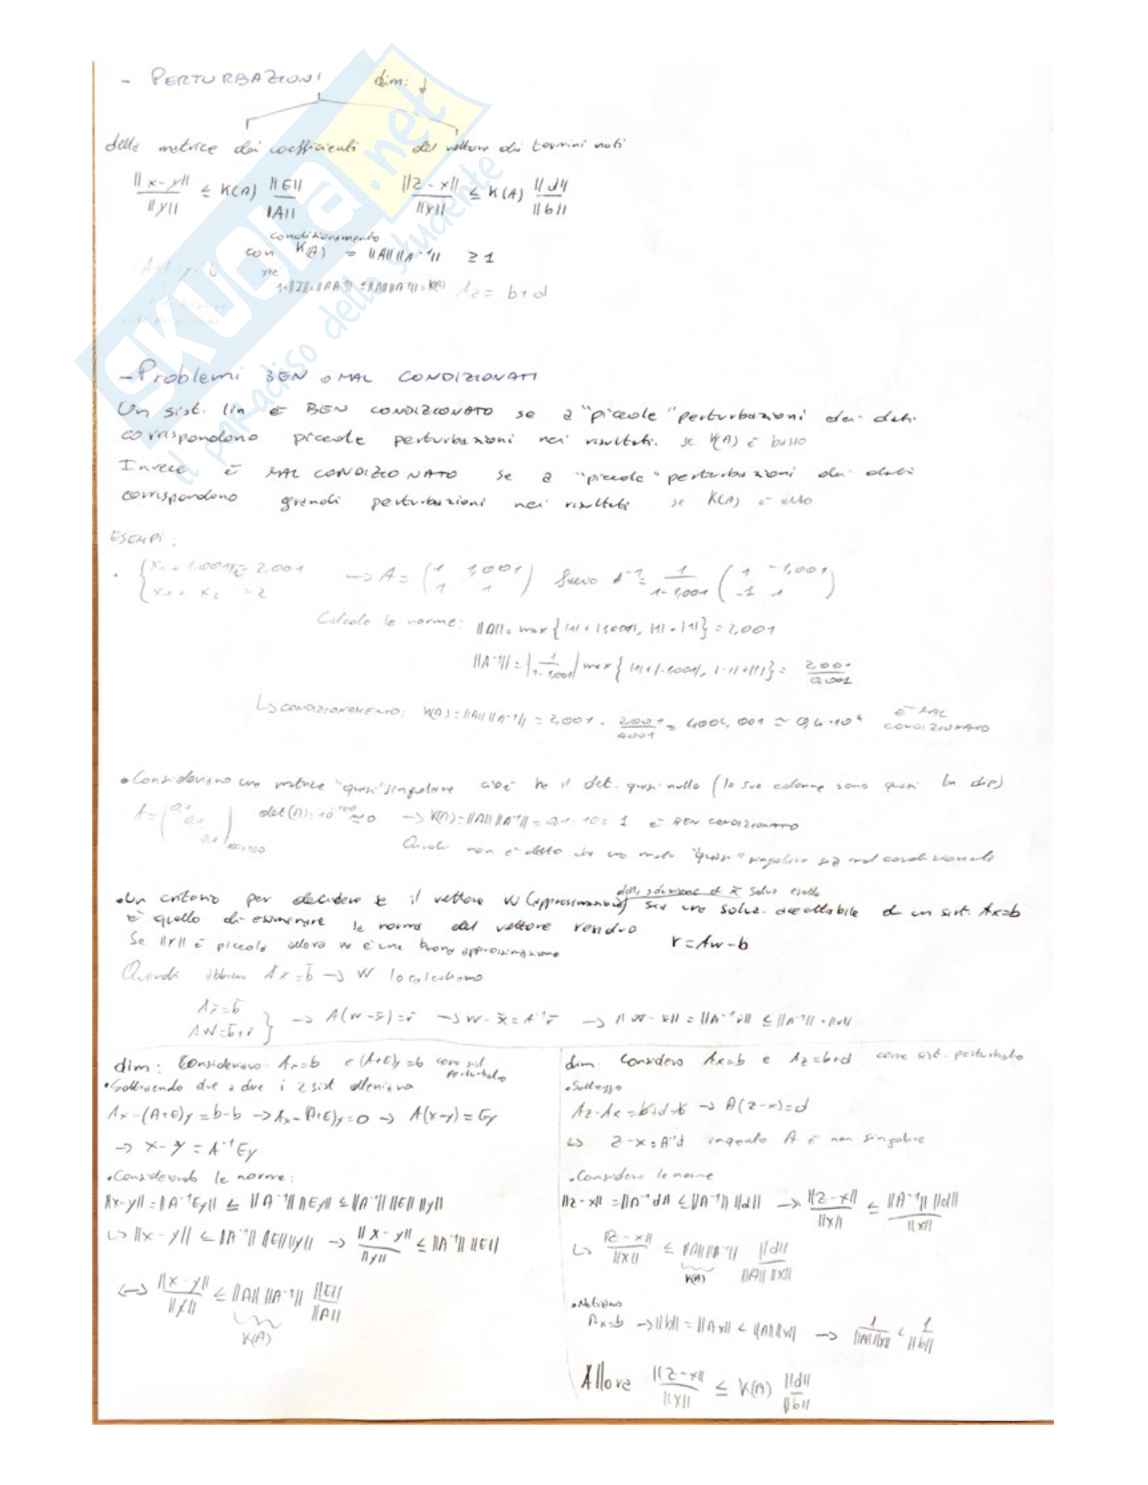 - PERTURBAZIONI dim: ↓
della matrice dei coefficienti
del vettore dei termini noti
||x-y|| / ||y|| ≤ K(A) ||E|| / ||A||
||z-x|| / ||x|| ≤ K(A) ||d|| / ||b||
condizionamento
con K(A) = ||A|| ||A⁻¹|| ≥ 1
Az = b+d
- Problemi BEN o MAL CONDIZIONATI
Un sist. lin è BEN CONDIZIONATO se a "piccole" perturbazioni dei dati
corrispondono piccole perturbazioni nei risultati. se K(A) è basso
Invece è MAL CONDIZIONATO se a "piccole" perturbazioni dei dati
corrispondono grandi perturbazioni nei risultati se K(A) è alto
ESEMPI:
• { x₁ + 1,001x₂ = 2,001
x₁ + x₂ = 2
→ A = ( 1 1,001
1 1 )
A⁻¹ = 1 / 1-1,001 ( 1 -1,001
-1 1 )
Calcolo le norme: ||A|| = max { |1| + |1,001|, |1| + |1| } = 2,001
||A⁻¹|| = | 1 / 1-1,001 | max { |1| + |-1,001|, |-1| + |1| } = 2,001 / 0,001
↳ CONDIZIONAMENTO: K(A) = ||A|| ||A⁻¹|| = 2,001 · 2,001 / 0,001 = 4004,001 ≃ 0,4·10⁴ è MAL CONDIZIONATO
• Consideriamo una matrice "quasi" singolare cioè ha il det. quasi nullo (le sue colonne sono quasi lin dip)
A = ( 0,1
0,1
0,1 ) 100×100
det(A) = 10⁻¹⁰⁰ ≃ 0 → K(A) = ||A|| ||A⁻¹|| = 0,1 · 10 = 1 è BEN CONDIZIONATO
Quindi non è detto che una matr "quasi" singolare sia mal condizionata
• Un criterio per decidere se il vettore W (approssimazione della soluzione di x̄ soluz esatta) sia una soluz. accettabile di un sist. Ax=b
è quello di esaminare la norma del vettore residuo r = Aw - b
Se ||r|| è piccola allora w è una buona approssimazione
Quindi abbiamo Ax = b → W lo calcoliamo
Ax̄ = b
AW = b + r } → A(w - x̄) = r → w - x̄ = A⁻¹r → ||w - x̄|| = ||A⁻¹r|| ≤ ||A⁻¹|| · ||r||
dim: Consideriamo Ax=b e (A+E)y=b come sist perturbato
• Sottraendo due a due i 2 sist otteniamo
Ax - (A+E)y = b-b → Ax - (A+E)y = 0 → A(x-y) = Ey
→ x - y = A⁻¹Ey
• Considerando le norme:
||x-y|| = ||A⁻¹Ey|| ≤ ||A⁻¹|| ||Ey|| ≤ ||A⁻¹|| ||E|| ||y||
↳ ||x-y|| ≤ ||A⁻¹|| ||E|| ||y|| → ||x-y|| / ||y|| ≤ ||A⁻¹|| ||E||
↔ ||x-y|| / ||y|| ≤ ||A|| ||A⁻¹|| ||E|| / ||A||
K(A)
dim. Considero Ax=b e Az=b+d come sist. perturbato
• Sottraggo
Az - Ax = b+d-b → A(z-x) = d
↳ z-x = A⁻¹d in quanto A è non singolare
• Considero le norme
||z-x|| = ||A⁻¹d|| ≤ ||A⁻¹|| ||d|| → ||z-x|| / ||x|| ≤ ||A⁻¹|| ||d|| / ||x||
↳ ||z-x|| / ||x|| ≤ ||A|| ||A⁻¹|| ||d|| / ||A|| ||x||
K(A)
• Notiamo
Ax=b → ||b|| = ||Ax|| ≤ ||A|| ||x|| → 1 / ||A|| ||x|| ≤ 1 / ||b||
Allora ||z-x|| / ||x|| ≤ K(A) ||d|| / ||b||
SKUOLA.net
il paradiso dello studente